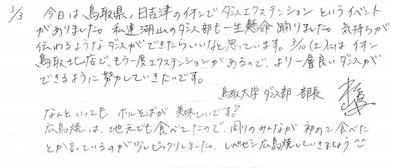 3/3
今日は、鳥取県、日吉津のイオンでダンスエクステンションというイベント
がありました。私達湖山のダンス部も一生懸命踊りました。気持ちが
伝わるようなダンスができたらいいなと思っています。3/10(土)には イオン
鳥取北店で、もう一度エクステンションがあるので、より一層良いダンスが
できるように努力していきたいです。
鳥取大学 ダンス部 部長
なんといっても ホルそばが 美味しいです!
広島焼は、地元でも食べてたので、周りのみんなが 初めて食べた
とか言っているのがビックリしました。レペゼン広島焼していきましょう